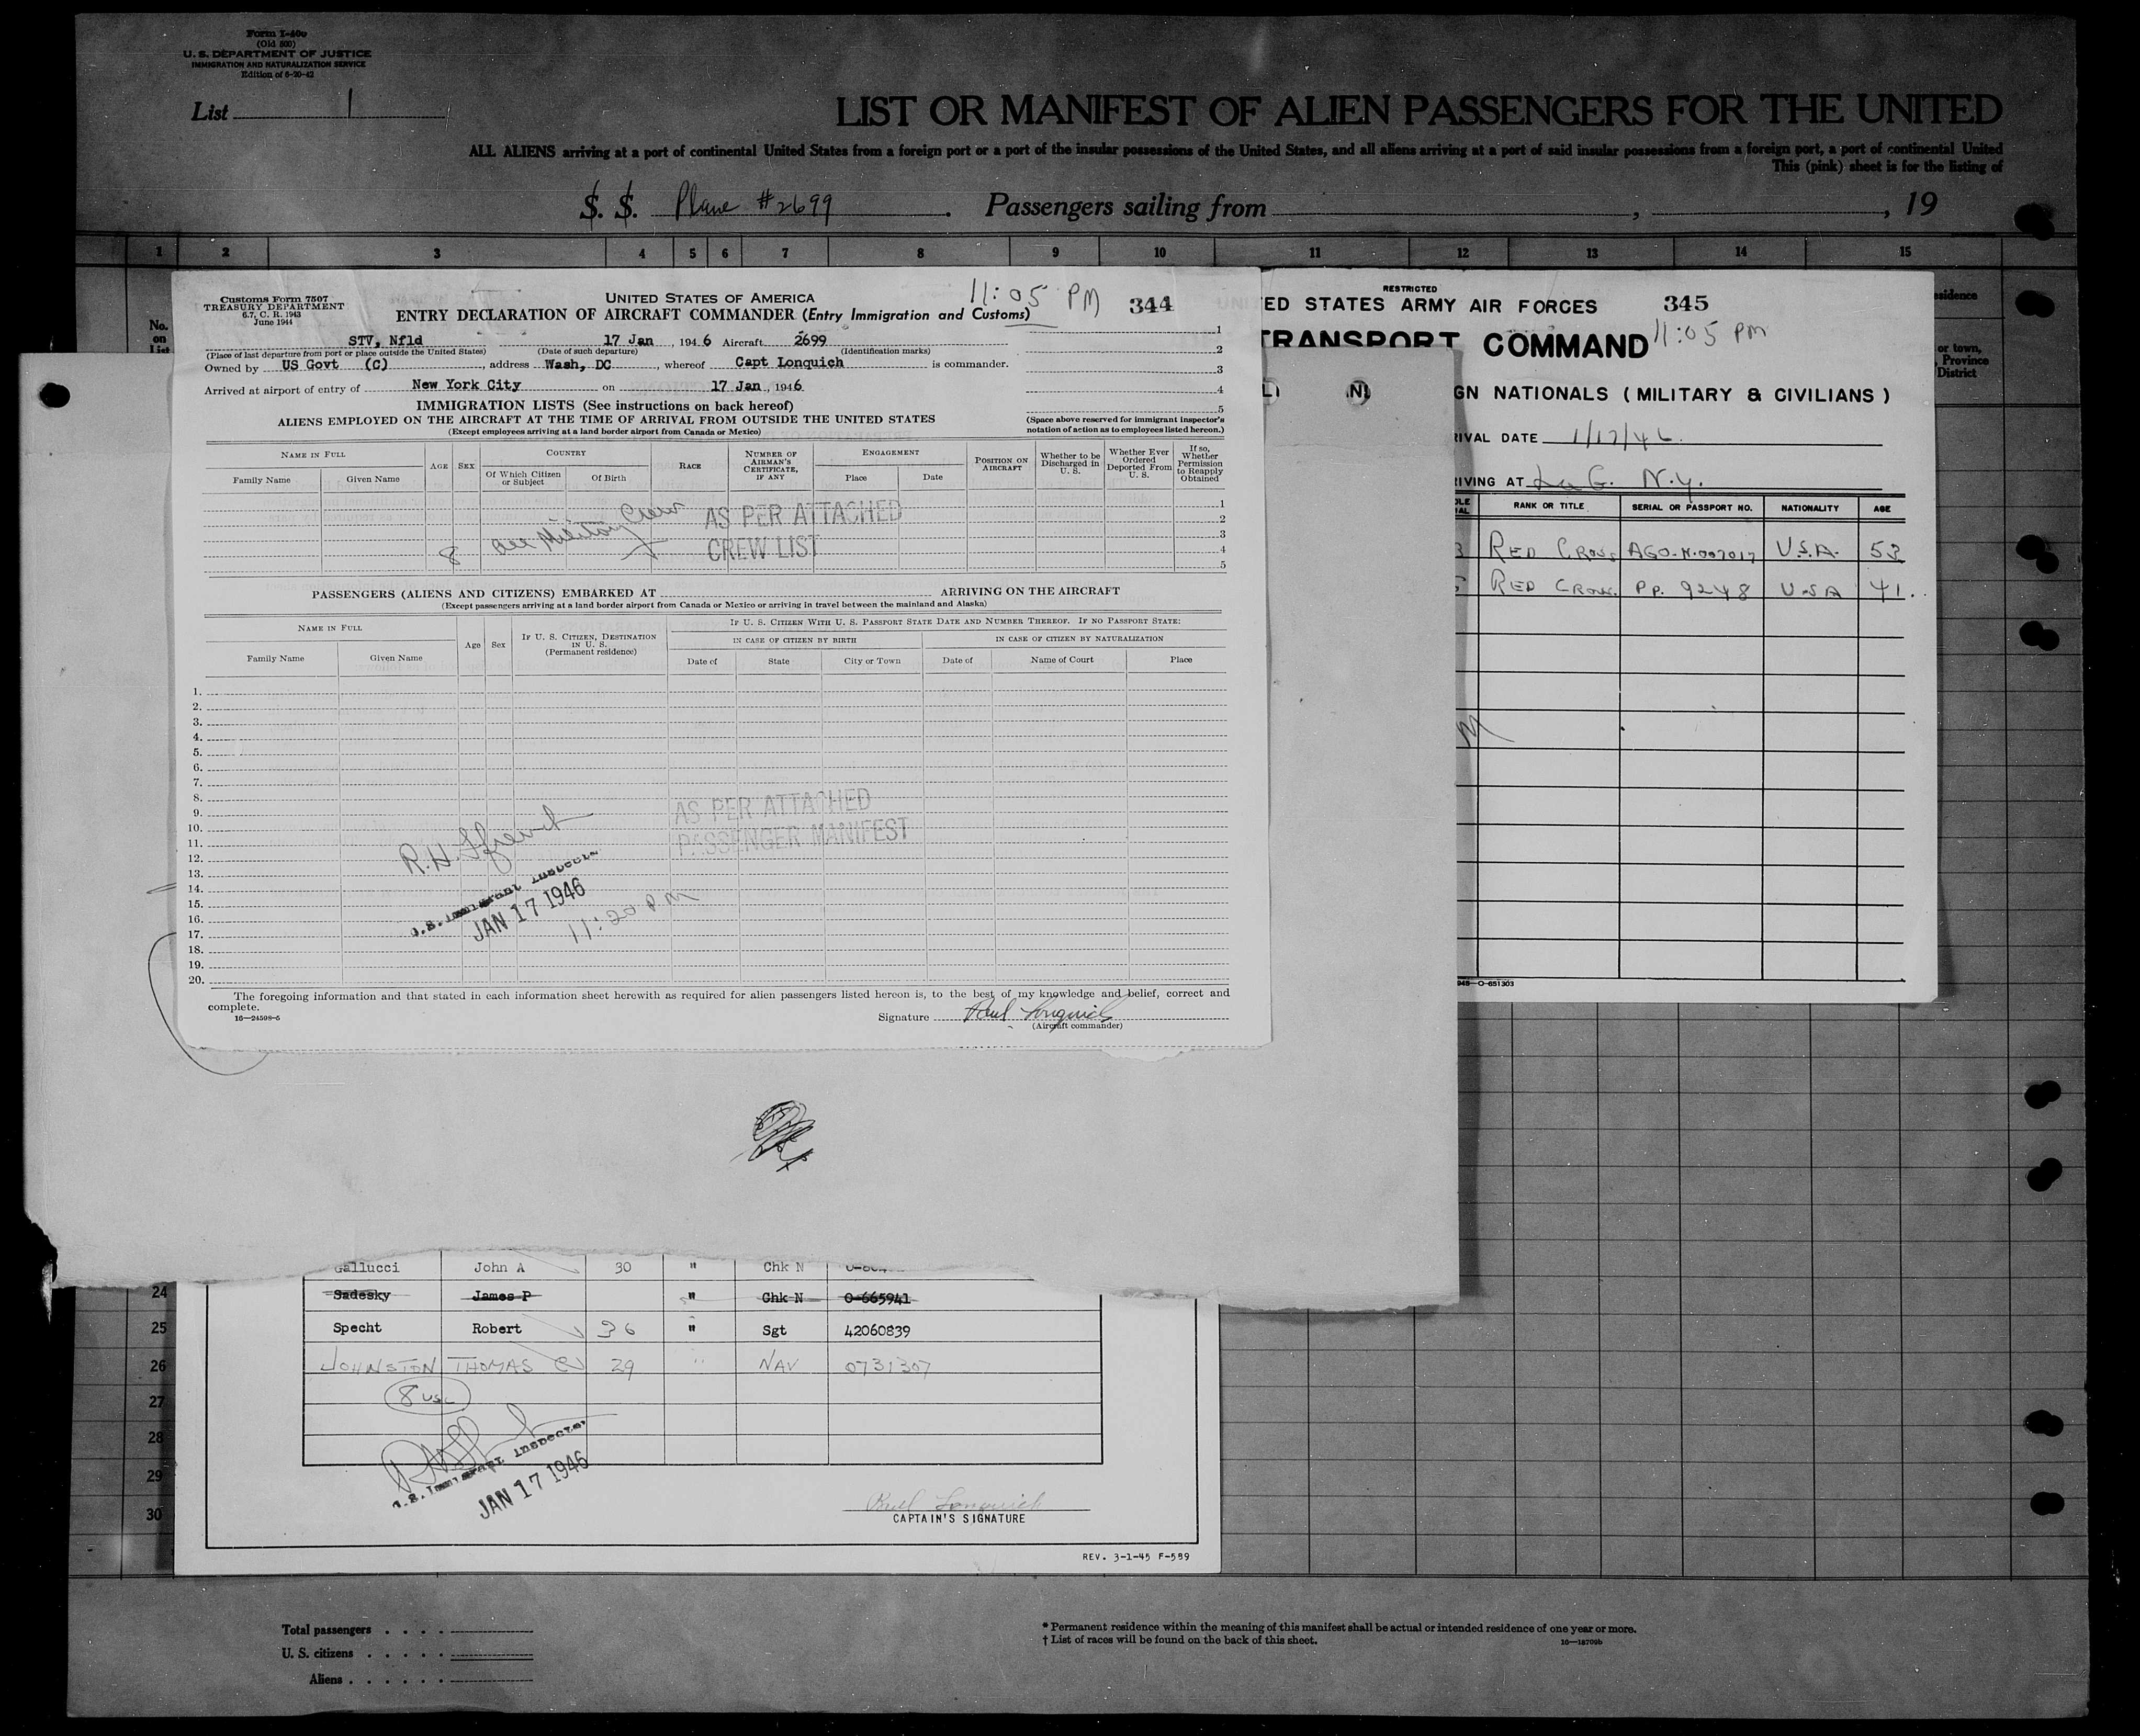 Form I-400
(Old 500)
U. S. DEPARTMENT OF JUSTICE
IMMIGRATION AND NATURALIZATION SERVICE
Edition of 6-20-42
List 1
LIST OR MANIFEST OF ALIEN PASSENGERS FOR THE UNITED
ALL ALIENS arriving at a port of continental United States from a foreign port or a port of the insular possessions of the United States, and all aliens arriving at a port of said insular possessions from a foreign port, a port of continental United
This (pink) sheet is for the listing of
S. S. Plane #2699 . Passengers sailing from , , 19
1 2 3 4 5 6 7 8 9 10 11 12 13 14 15
No.
on
List
Customs Form 7507
TREASURY DEPARTMENT
6.7, C. R. 1943
June 1944
UNITED STATES OF AMERICA
11:05 PM
344
ENTRY DECLARATION OF AIRCRAFT COMMANDER (Entry Immigration and Customs)
STV, Nfld 17 Jan , 1946 Aircraft 2699
(Place of last departure from port or place outside the United States) (Date of such departure) (Identification marks)
Owned by US Govt (C) , address Wash, DC , whereof Capt Lonquich is commander.
Arrived at airport of entry of New York City on 17 Jan , 1946
1
2
3
4
5
IMMIGRATION LISTS (See instructions on back hereof)
ALIENS EMPLOYED ON THE AIRCRAFT AT THE TIME OF ARRIVAL FROM OUTSIDE THE UNITED STATES
(Except employees arriving at a land border airport from Canada or Mexico)
(Space above reserved for immigrant inspector's
notation of action as to employees listed hereon.)
NAME IN FULL AGE SEX COUNTRY RACE NUMBER OF AIRMAN'S CERTIFICATE, IF ANY ENGAGEMENT POSITION ON AIRCRAFT Whether to be Discharged in U. S. Whether Ever Ordered Deported From U. S. If so, Whether Permission to Reapply Obtained
Family Name Given Name Of Which Citizen or Subject Of Birth Place Date
8 all Military Crew
AS PER ATTACHED
CREW LIST
1
2
3
4
5
PASSENGERS (ALIENS AND CITIZENS) EMBARKED AT ARRIVING ON THE AIRCRAFT
(Except passengers arriving at a land border airport from Canada or Mexico or arriving in travel between the mainland and Alaska)
NAME IN FULL Age Sex IF U. S. CITIZEN, DESTINATION IN U. S. (Permanent residence) IF U. S. CITIZEN WITH U. S. PASSPORT STATE DATE AND NUMBER THEREOF. IF NO PASSPORT STATE:
IN CASE OF CITIZEN BY BIRTH IN CASE OF CITIZEN BY NATURALIZATION
Family Name Given Name Date of State City or Town Date of Name of Court Place
1.
2.
3.
4.
5.
6.
7.
8.
9.
10.
11.
12.
13.
14.
15.
16.
17.
18.
19.
20.
AS PER ATTACHED
PASSENGER MANIFEST
R.H. Ffrench
U.S. Immigrant Inspector
JAN 17 1946
11:20 PM
The foregoing information and that stated in each information sheet herewith as required for alien passengers listed hereon is, to the best of my knowledge and belief, correct and
complete.
16—24508-5
Signature Paul Lonquich
(Aircraft commander)
RESTRICTED
ED STATES ARMY AIR FORCES 345
TRANSPORT COMMAND 11:05 PM
GN NATIONALS ( MILITARY & CIVILIANS )
IVAL DATE 1/17/46.
IVING AT La G. N.Y.
RANK OR TITLE SERIAL OR PASSPORT NO. NATIONALITY AGE
RED CROSS AGO-N.007017 U.S.A. 53
RED CROSS. PP. 9248 USA 41.
945—O-651303
sidence
or town,
Province
District
Gallucci John A 30 " Chk N
24 Sadesky James P " Chk N O-665941
25 Specht Robert 36 " Sgt 42060839
26 JOHNSTON THOMAS C 29 " NAV 0731307
27 8 USC
28
29
30
U.S. Immigrant Inspector
JAN 17 1946
Paul Lonquich
CAPTAIN'S SIGNATURE
REV. 3-1-45 F-559
Total passengers . . . .
U. S. citizens . . . . .
Aliens . . . . . .
* Permanent residence within the meaning of this manifest shall be actual or intended residence of one year or more.
† List of races will be found on the back of this sheet.
16—18709b